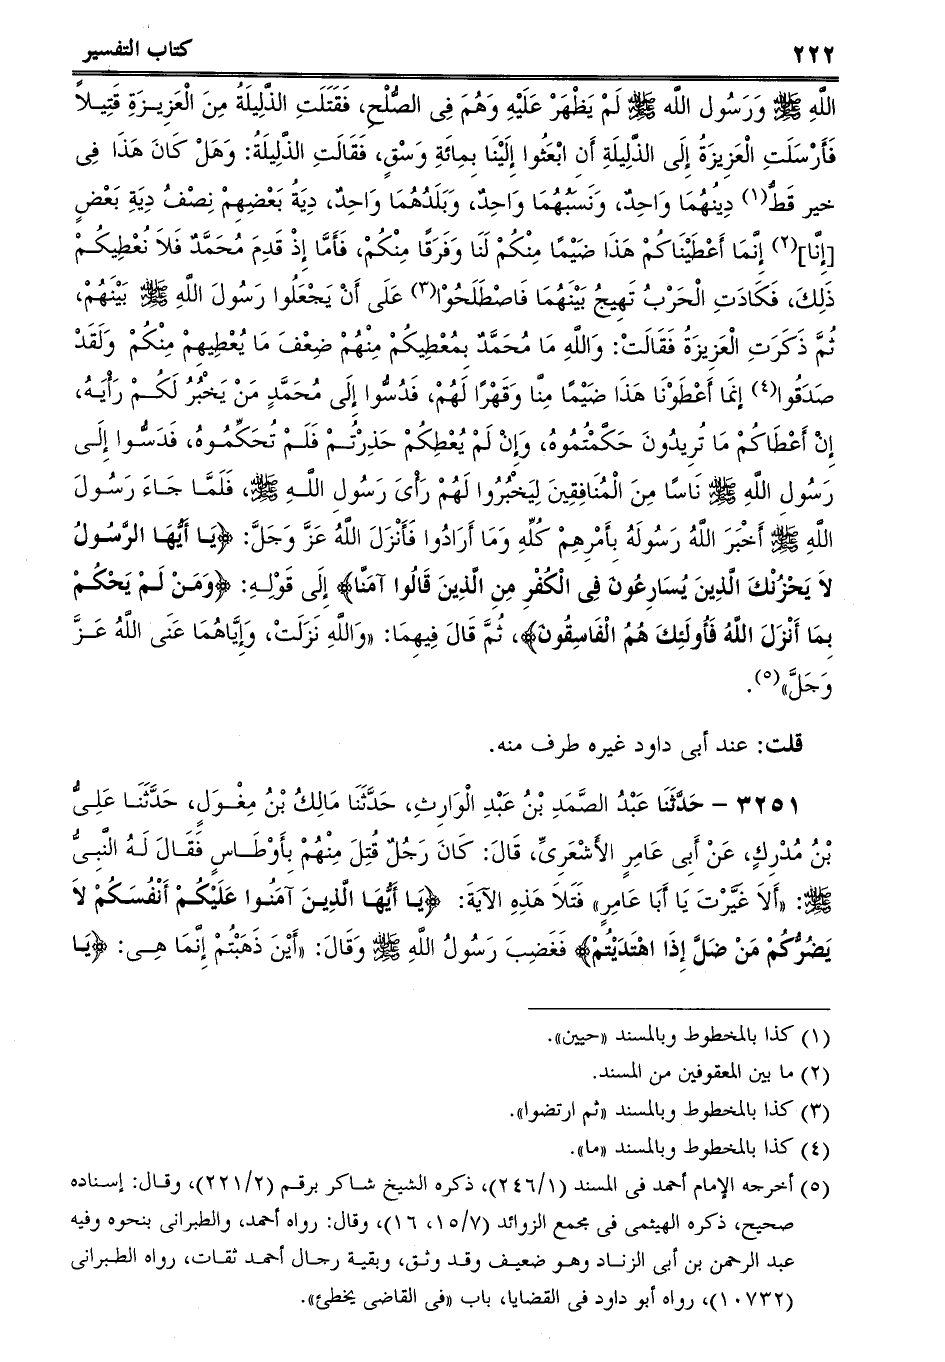 ٢٢٢ كتاب التفسير
اللَّهِ ﷺ وَرَسُول اللَّه ﷺ لَمْ يَظْهَرْ عَلَيْهِ وَهُمَ فِى الصُّلْحِ، فَقَتَلَتِ الذَّلِيلَةُ مِنَ الْعَزِيزَةِ قَتِيلاً
فَأَرْسَلَتِ الْعَزِيزَةُ إِلَى الذَّلِيلَةِ أَن ابْعَثُوا إِلَيْنَا بِمائَةِ وَسْقٍ، فَقَالَتِ الذَّلِيلَةُ: وَهَلْ كَانَ هَذَا فِى
خير قَطُّ(١) دِينُهُمَا وَاحِدٌ، وَنَسَبُهُمَا وَاحِدٌ، وَبَلَدُهُمَا وَاحِد، دِيَةُ بَعْضِهِمْ نِصْفُ دِيَةِ بَعْضٍ
[إِنَّا](٢) إِنَّمَا أَعْطَيْنَاكُمْ هَذَا ضَيْمًا مِنكُمْ لَنَا وَفَرَقًا مِنْكُمْ، فَأَمَّا إِذْ قَدِمَ مُحَمَّدٌ فَلاَ نُعْطِيكُمْ
ذَلِكَ، فَكَادَتِ الْحَرْبُ تَهِيجُ بَيْنَهُمَا فَاصْطَلَحُوْا(٣) عَلَى أَنْ يَجْعَلُوا رَسُولَ اللَّهِ ﷺ بَيْنَهُمْ،
ثُمَّ ذَكَرَتِ الْعَزِيزَةُ فَقَالَتْ: وَاللَّهِ مَا مُحَمَّدٌ بِمُعْطِيكُمْ مِنْهُمْ ضِعْفَ مَا يُعْطِيهِمْ مِنْكُمْ وَلَقَدْ
صَدَقُوا(٤) إنَّمَا أَعْطَوْنَا هَذَا ضَيْمًا مِنَّا وَقَهْرًا لَهُمْ، فَدُسُّوا إِلَى مُحَمَّدٍ مَنْ يَخْبُرُ لَكُمْ رَأْيَهُ،
إِنْ أَعْطَاكُمْ مَا تُرِيدُونَ حَكَّمْتُمُوهُ، وَإِنْ لَمْ يُعْطِكُمْ حَذِرْتُمْ فَلَمْ تُحَكِّمُوهُ، فَدَسُّوا إِلَى
رَسُول اللَّهِ ﷺ نَاسًا مِنَ الْمُنَافِقِينَ لِيَخْبُرُوا لَهُمْ رَأْىَ رَسُول اللَّهِ ﷺ، فَلَمَّا جَاءَ رَسُولَ
اللَّهِ ﷺ أَخْبَرَ اللَّهُ رَسُولَهُ بِأَمْرِهِمْ كُلِّهِ وَمَا أَرَادُوا فَأَنْزَلَ اللَّهُ عَزَّ وَجَلَّ: ﴿يَا أَيُّهَا الرَّسُولُ
لاَ يَحْزُنْكَ الَّذِينَ يُسَارِعُونَ فِى الْكُفْرِ مِن الَّذِينَ قَالُوا آمَنَّا﴾ إِلَى قَوْلِهِ: ﴿وَمَنْ لَمْ يَحْكُمْ
بِمَا أَنْزَلَ اللَّهُ فَأُولَئِكَ هُمُ الْفَاسِقُونَ﴾، ثُمَّ قَالَ فِيهِمَا: «وَاللَّهِ نَزَلَتْ، وَإِيَّاهُمَا عَنَى اللَّهُ عَزَّ
وَجَلَّ»(٥).
قلت: عند أبى داود غيره طرف منه.
٣٢٥١ – حَدَّثَنَا عَبْدُ الصَّمَدِ بْنُ عَبْدِ الْوَارِثِ، حَدَّثَنَا مَالِكُ بْنُ مِغْوَلٍ، حَدَّثَنَا عَلِىُّ
بْنُ مُدْرِكٍ، عَنْ أَبِى عَامِرٍ الأَشْعَرِىِّ، قَالَ: كَانَ رَجُلٌ قُتِلَ مِنْهُمْ بِأَوْطَاسٍ فَقَالَ لَهُ النَّبِىُّ
ﷺ: «أَلاَ غَيَّرْتَ يَا أَبَا عَامِرٍ» فَتَلاَ هَذِهِ الآيَةَ: ﴿يَا أَيُّهَا الَّذِينَ آمَنُوا عَلَيْكُمْ أَنْفُسَكُمْ لاَ
يَضُرُّكُمْ مَنْ ضَلَّ إِذَا اهْتَدَيْتُمْ﴾ فَغَضِبَ رَسُولُ اللَّهِ ﷺ وَقَالَ: «أَيْنَ ذَهَبْتُمْ إِنَّمَا هِىَ: ﴿يَا
(١) كذا بالمخطوط وبالمسند «حيين».
(٢) ما بين المعقوفين من المسند.
(٣) كذا بالمخطوط وبالمسند «ثم ارتضوا».
(٤) كذا بالمخطوط وبالمسند «ما».
(٥) أخرجه الإمام أحمد فى المسند (٢٤٦/١)، ذكره الشيخ شاكر برقم (٢٢١/٢)، وقال: إسناده
صحيح، ذكره الهيثمى فى مجمع الزوائد (١٥/٧، ١٦)، وقال: رواه أحمد، والطبرانى بنحوه وفيه
عبد الرحمن بن أبى الزناد وهو ضعيف وقد وثق، وبقية رجال أحمد ثقات، رواه الطبرانى
(١٠٧٣٢)، رواه أبو داود فى القضايا، باب «فى القاضى يخطئ».